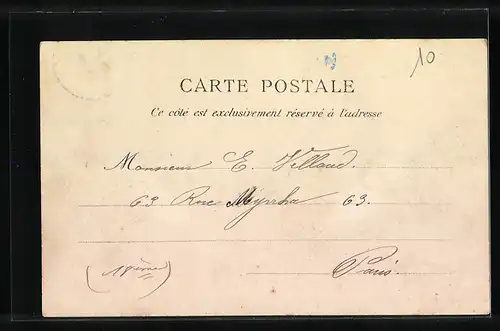 10
CARTE POSTALE
Ce côté est exclusivement réservé à l'adresse
Monsieur E. Villaud.
63 Rue Myrrha 63.
(18ème)
Paris.